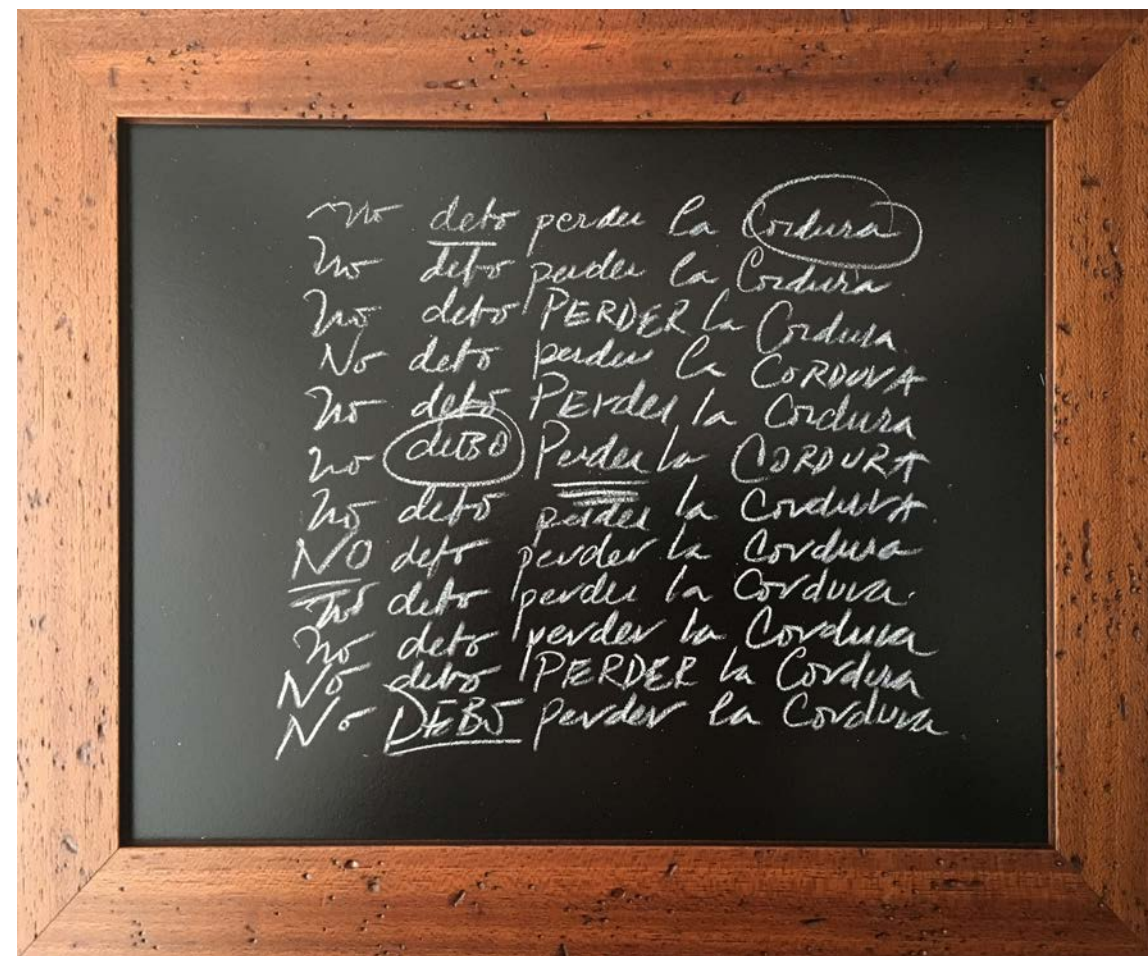 no debo perder la Cordura
no debo perder la Cordura
no debo PERDER la Cordura
No debo perder la CORDURA
no debo PErder la Cordura
no deBO Perder la CORDURA
no debo perder la CordurA
NO debo perder la Cordura
no debo perder la Cordura.
no debo perder la Cordura
No debo PERDER la Cordura
No DEBO perder la Cordura